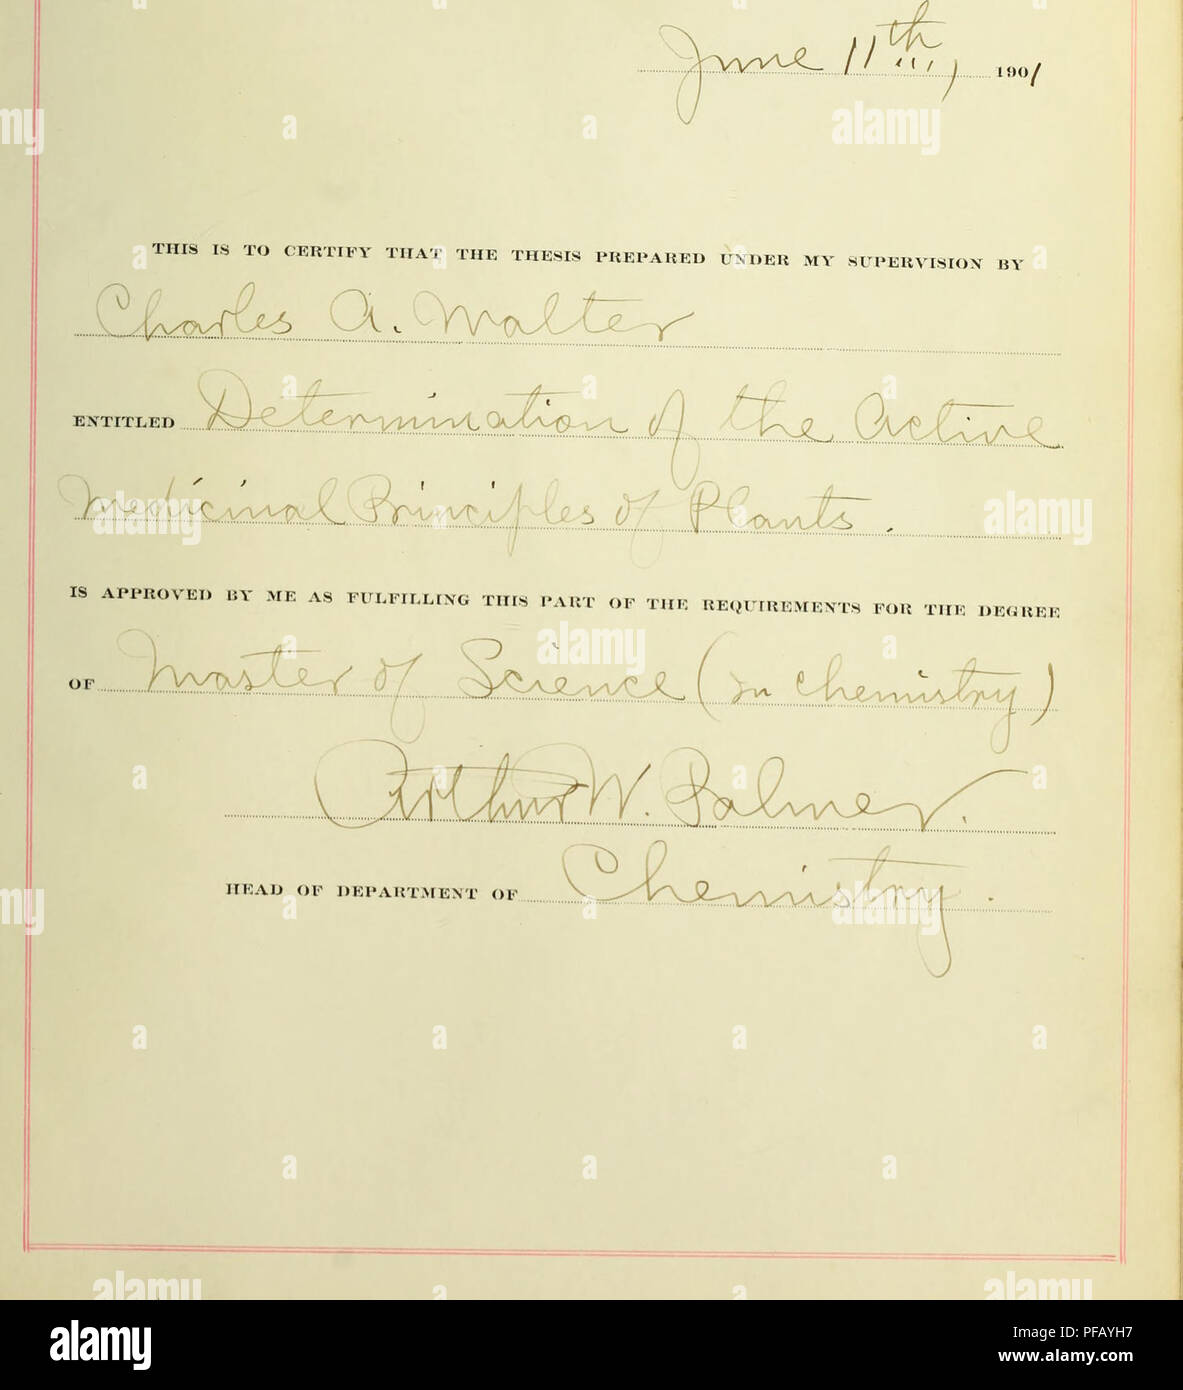 June 11th, 1901
THIS IS TO CERTIFY THAT THE THESIS PREPARED UNDER MY SUPERVISION BY
Charles A. Walter
ENTITLED Determination of the Active
Medicinal Principles of Plants.
IS APPROVED BY ME AS FULFILLING THIS PART OF THE REQUIREMENTS FOR THE DEGREE
OF Master of Science (in Chemistry)
Arthur W. Palmer.
HEAD OF DEPARTMENT OF Chemistry.
alamy
Image ID: PFAYH7
www.alamy.com